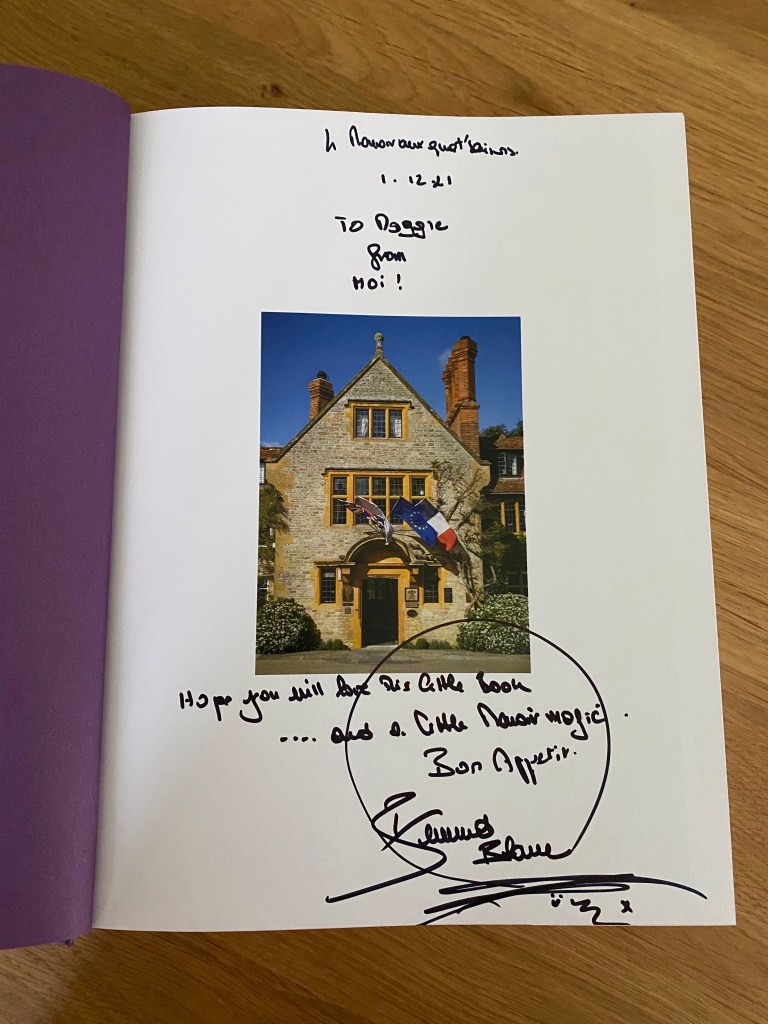 Le Manoir aux Quat'Saisons.
1.12.21
To Maggie
from
Moi !
Hope you will love this little Book
.... and a little Manoir magic.
Bon Appetit.
Raymond
Blanc
x